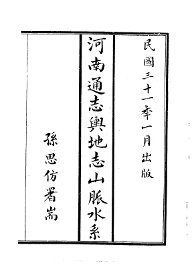 民國三十一年一月出版
河南通志輿地志山脈水系
孫思仿署耑